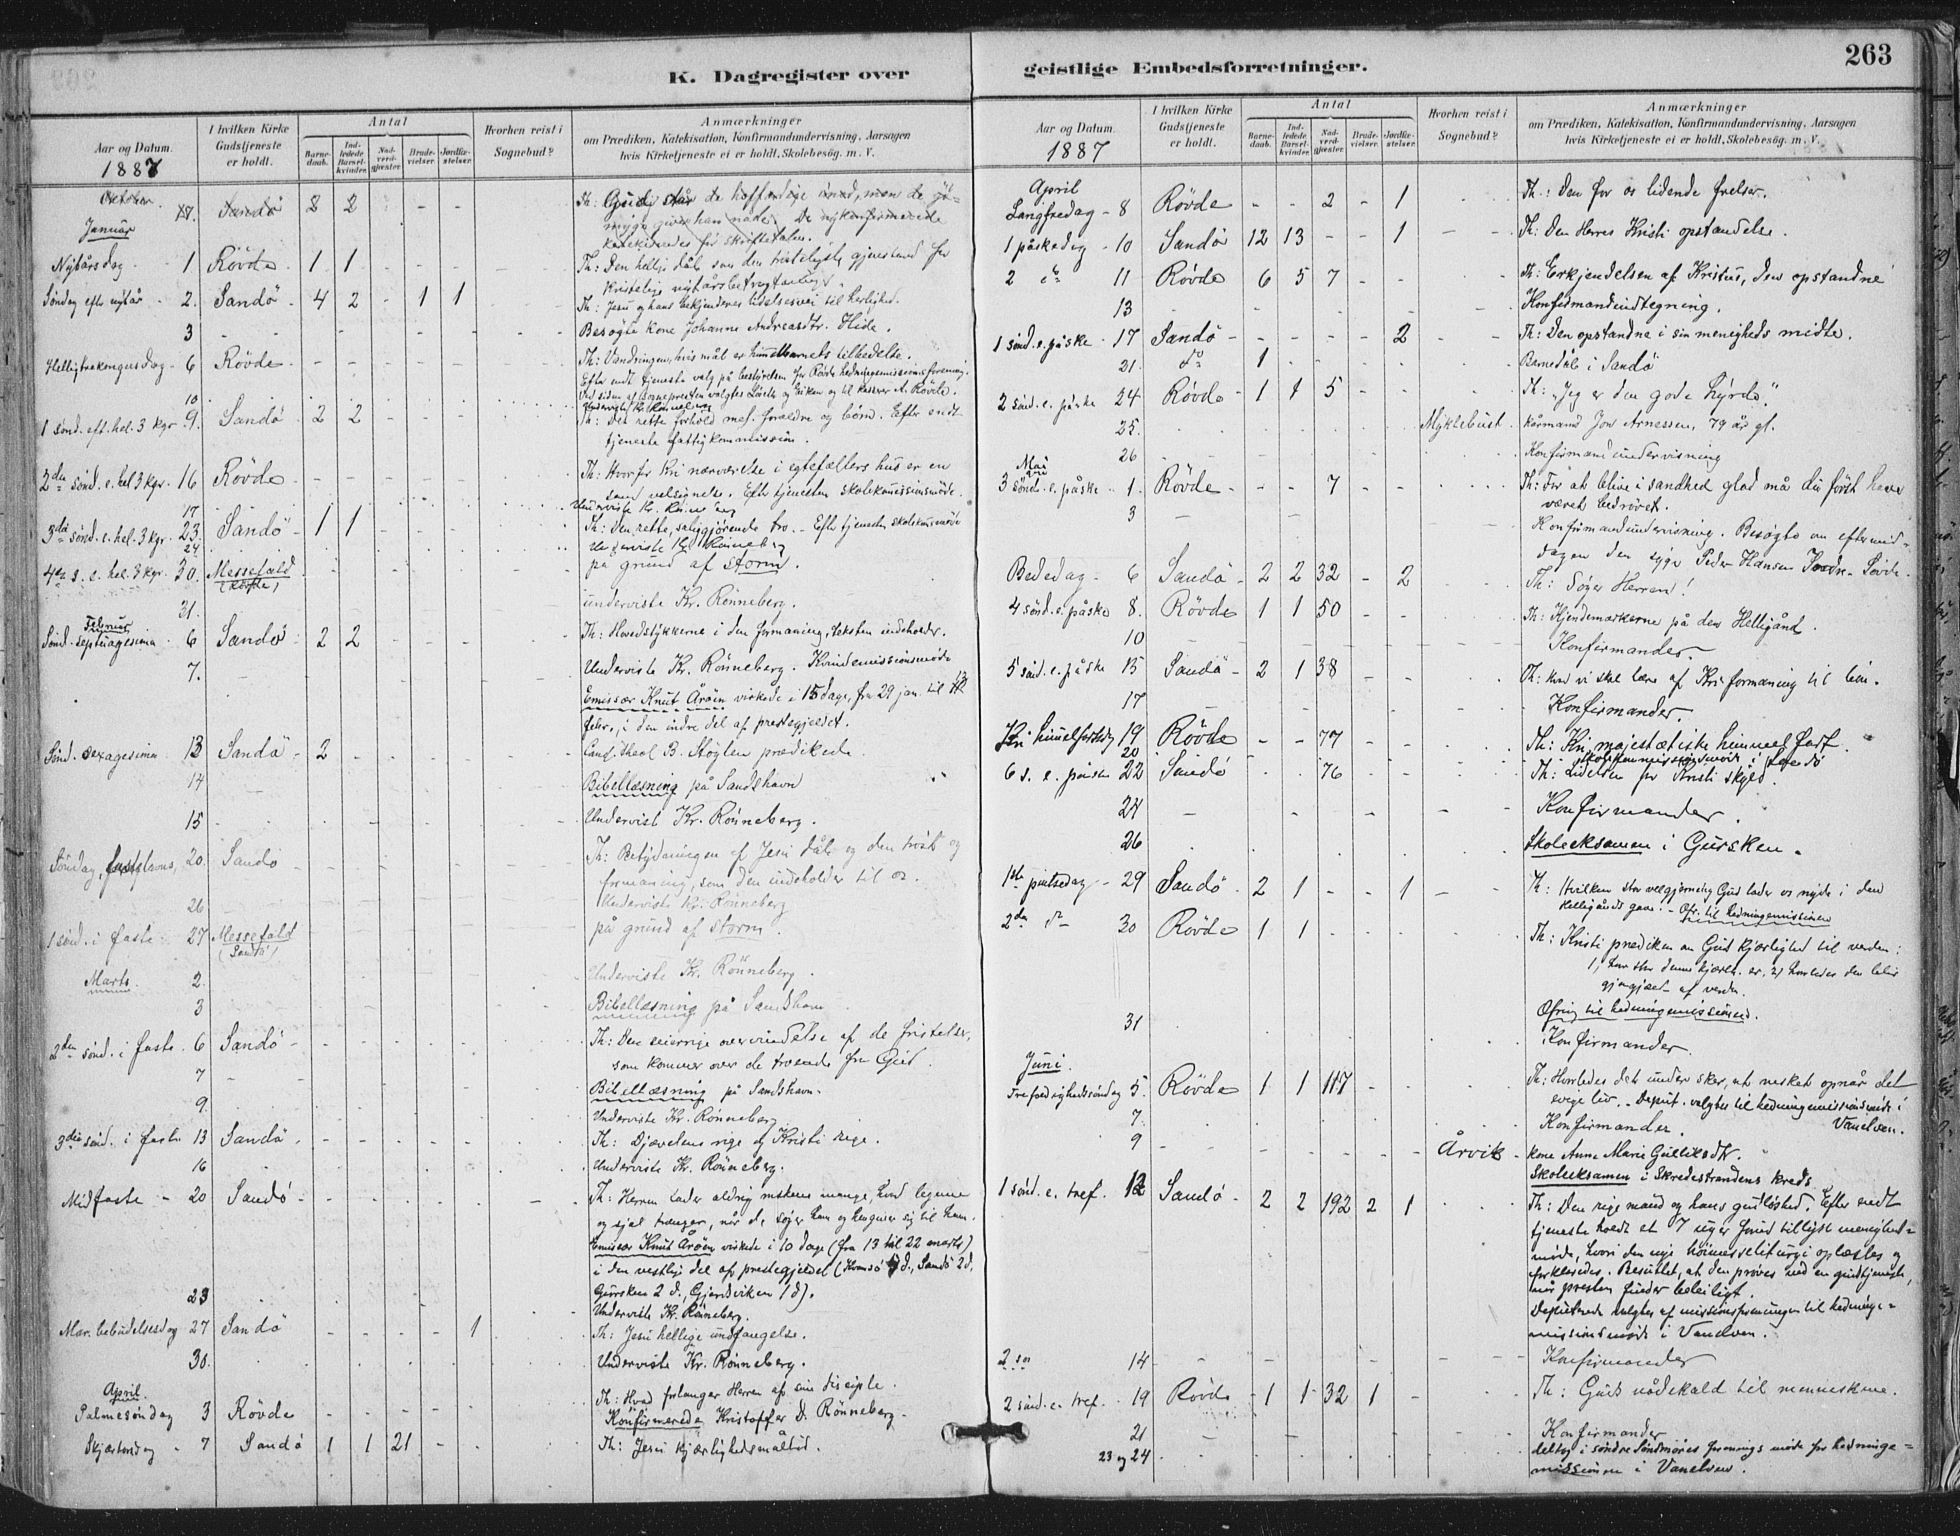 K. Dagregister over
Aar og Datum.
1887
I hvilken Kirke Gudstjeneste er holdt.
Antal
Barnedaab.
Indledede Barselkvinder.
Nadverdgjæster.
Brudevielser.
Jordfæstelser.
Hvorhen reist i Sognebud?
Anmærkninger
om Prædiken, Katekisation, Konfirmandundervisning, Aarsagen
hvis Kirketjeneste ei er holdt, Skolebesøg. m. V.
Oktober 17. Sandö 2 2 Th: Gud står de hoffærdige imod, men de yd-
myge giver han nåde. De nykonfirmerede
katekiseredes før skriftetalen.
Januar
Nytårsdag 1 Rövde 1 1 Th: Den hellige dåb som den vigtigste gjenstand for
kristelig nytårsbetragtning.
Söndag eftr nytår 2. Sandö 4 2 - 1 1 Th: Jesu og hans bekjenderes lidelsesvei til herlighed.
3 Besøgte kone Johanne Andreasdtr. Hide.
Helligtrekongersdag 6 Rövde Th: Vandringen, hvis mål er hint barnets tilbedelse.
Efter endt tjeneste valg på bestyrelsen for Rövde hedningemissionsforening.
Ved siden af sognepresten valgtes og til kasserer A. Rövde.
10 Underviste Kr. Rönneberg
1 sönd. eft. hel. 3 kgr. 9. Sandö 2 2 Th: Det rette forhold mel. forældre og börn. Efter endt
tjeneste fattigkommission.
2den sönd. e. hel 3 kgr. 16 Rövde Th: Hvorfor Kri nærværelse i egtefællers hus er en
sann velsignelse. Efter tjenesten skolekomissionsmöde.
17 Underviste Kr. Rönneberg
3die sönd. e. hel. 3 kgr. 23 Sandö 1 1 Th: Den rette, saliggjörende tro. - Efter tjenesten skolekomsmöde
24 Underviste Kr. Rönneberg
4de s. e. hel. 3 kgr. 30. Messefald (Rövde) på grund af storm.
31. underviste Kr. Rönneberg.
Februar
Sönd. septuagesima 6 Sandö 2 2 Th: Hovedstykkerne i den formaning, teksten indeholder.
7. Underviste Kr. Rönneberg. Kvindemissionsmöde
Emissær Knut Åröen virkede i 15 dage, fra 29 jan. til 13
febr., i den indre del af prestegjeldet.
Sönd. sexagesima 13 Sandö 2 Cand. theol B. Stöylen prædikede.
14 Bibellæsning på Sandshavn
15 Undervist Kr. Rönneberg.
Söndag, fastelavns, 20. Sandö Th: Betydningen af Jesu dåb og den tröst og
formaning, som den indeholder til os.
26 Underviste Kr. Rönneberg
1 sönd. i faste 27 Messefald (Sandö) på grund af storm.
Marts. 2. Underviste Kr. Rönneberg.
3 Bibellæsning på Sandshavn
2den sönd. i faste. 6 Sandö Th: Den seierrige overvindelse af de fristelser,
som kommer over de troende fra Gud.
7 Bibellæsning på Sandshavn.
9. Underviste Kr. Rönneberg
3die sönd. i faste 13 Sandö Th: Djævelens rige og Kristi rige.
16 Underviste Kr. Rönneberg.
Midfaste 20 Sandö Th: Herren lader aldrig mskene mange, hvad legeme
og sjæl trænger, når de söger ham og hengiver sig til ham.
Emissær Knut Åröen virkede i 10 dage (fra 13 til 22 marts)
i den vestlige del af prestegjeldet (Kvamsö d., Sandö 2 d.
Gursken 2 d., Gjerdsviken 1 d).
23 Underviste Kr. Rönneberg.
Mar. bebudelsesdag 27 Sandö 1 Th: Jesu hellige undfangelse.
30. Underviste Kr. Rönneberg.
April.
Palmesöndag 3 Rövde Th: Hvad forlanger Herren af sine disciple.
Konfirmerede Kristoffer D. Rönneberg.
Skjærtorsdag 7 Sandö 1 1 21 Th: Jesu kjærlighedsmåltid.
263
geistlige Embedsforretninger.
Aar og Datum.
1887
I hvilken Kirke Gudstjeneste er holdt.
Antal
Barnedaab.
Indledede Barselkvinder.
Nadverdgjæster.
Brudevielser.
Jordfæstelser.
Hvorhen reist i Sognebud?
Anmærkninger
om Prædiken, Katekisation, Konfirmandundervisning, Aarsagen
hvis Kirketjeneste ei er holdt, Skolebesøg. m. V.
April
Langfredag 8 Rövde - - 2 - 1 Th: Den for os lidende frelser.
1 påskedag 10 Sandö 12 13 - - 1 Th: Den Herres Kristi opstandelse.
2 do 11 Rövde 6 5 7 Th: Erkjendelsen af Kristus, den opstandne
13 Konfirmandindtegning.
1 sönd. e. påske 17 Sandö 2 Th: Den opstandne i sin menigheds midte.
21. do 1 Barnedåb i Sandö
2 sönd. e. påske 24 Rövde 1 1 5 Th: "Jeg er den gode hyrde".
25. Myklebust kårmand Jon Arnessen, 79 år gl.
26 Konfirmandundervisning
Mai
3 sönd. e. påske 1. Rövde - - 7 Th: For at blive i sandhed glad må du först have
været bedrövet.
3 Konfirmandundervisning. Besøgte om eftermid-
dagen den syge Peder Hansen Sövde.
Bededag 6 Sandö 2 2 32 - 2 Th: Söger Herren!
4 sönd. e. påske 8. Rövde 1 1 50 Th: Kjendemærkerne på den Helligånd.
10 Konfirmander.
5 sönd. e. påske 15 Sandö 2 1 38 Th: hvad vi skal lære af Kri formaning til bön.
17 Konfirmander.
Kri himmelfartsdag 19 Rövde - - 77 Th: Kri majestætiske himmelfart.
20 skolekommissionsmöde i Sandö
6 s. e. påske 22 Sandö 76 Th: Lidelsen for Kristi skyld.
24 Konfirmander.
26 Skoleeksamen i Gursken.
1ste pintsedag 29 Sandö 2 1 - - 1 Th: Hvilken stor velgjerning Gud lader os nyde i den
Helligånds gave. - Ofr. til hedningemissionen
2den do 30 Rövde 1 1 Th: Kristi prædiken om Guds kjærlighed til verden:
1, hvor stor denne kjærl. er, 2, hvorledes den blir
gjengjældt af verden.
Ofring til hedningemissionen.
31 Konfirmander.
Juni.
Trefoldighedssöndag 5. Rövde 1 1 117 Th: Hvorledes det under sker, at mesket opnår det
evige liv. - Deput. valgtes til hedningemissionsmöde i
Vanelven.
7. Konfirmander.
9 Årvik kone Anne Marie Gulliksdtr.
Skoleeksamen i Skredestrandens kreds.
1 sönd. e. tref. 12 Sandö 2 2 192 2 1 Th: Den rige mand og hans gudlöshed. Efter endt
tjeneste holdt et 7 uger forud tillyst menigheds-
möde, hvori den nye höimesseliturgi oplæstes og
forklaredes. Besluttet, at den pröves ved en gudstjeneste,
når presten finder beleiligt.
Deputerede valgtes af missionsforeningen til hedninge-
missionsmöde i Vanelven.
14 Konfirmander
2 sönd. e. tref. 19 Rövde 1 1 32 1 Th: Guds nådekald til menneskene.
21 Konfirmander
23 og 24 deltog i söndre Söndmöres forenings möde for hedninge-
missionen i Vanelven.